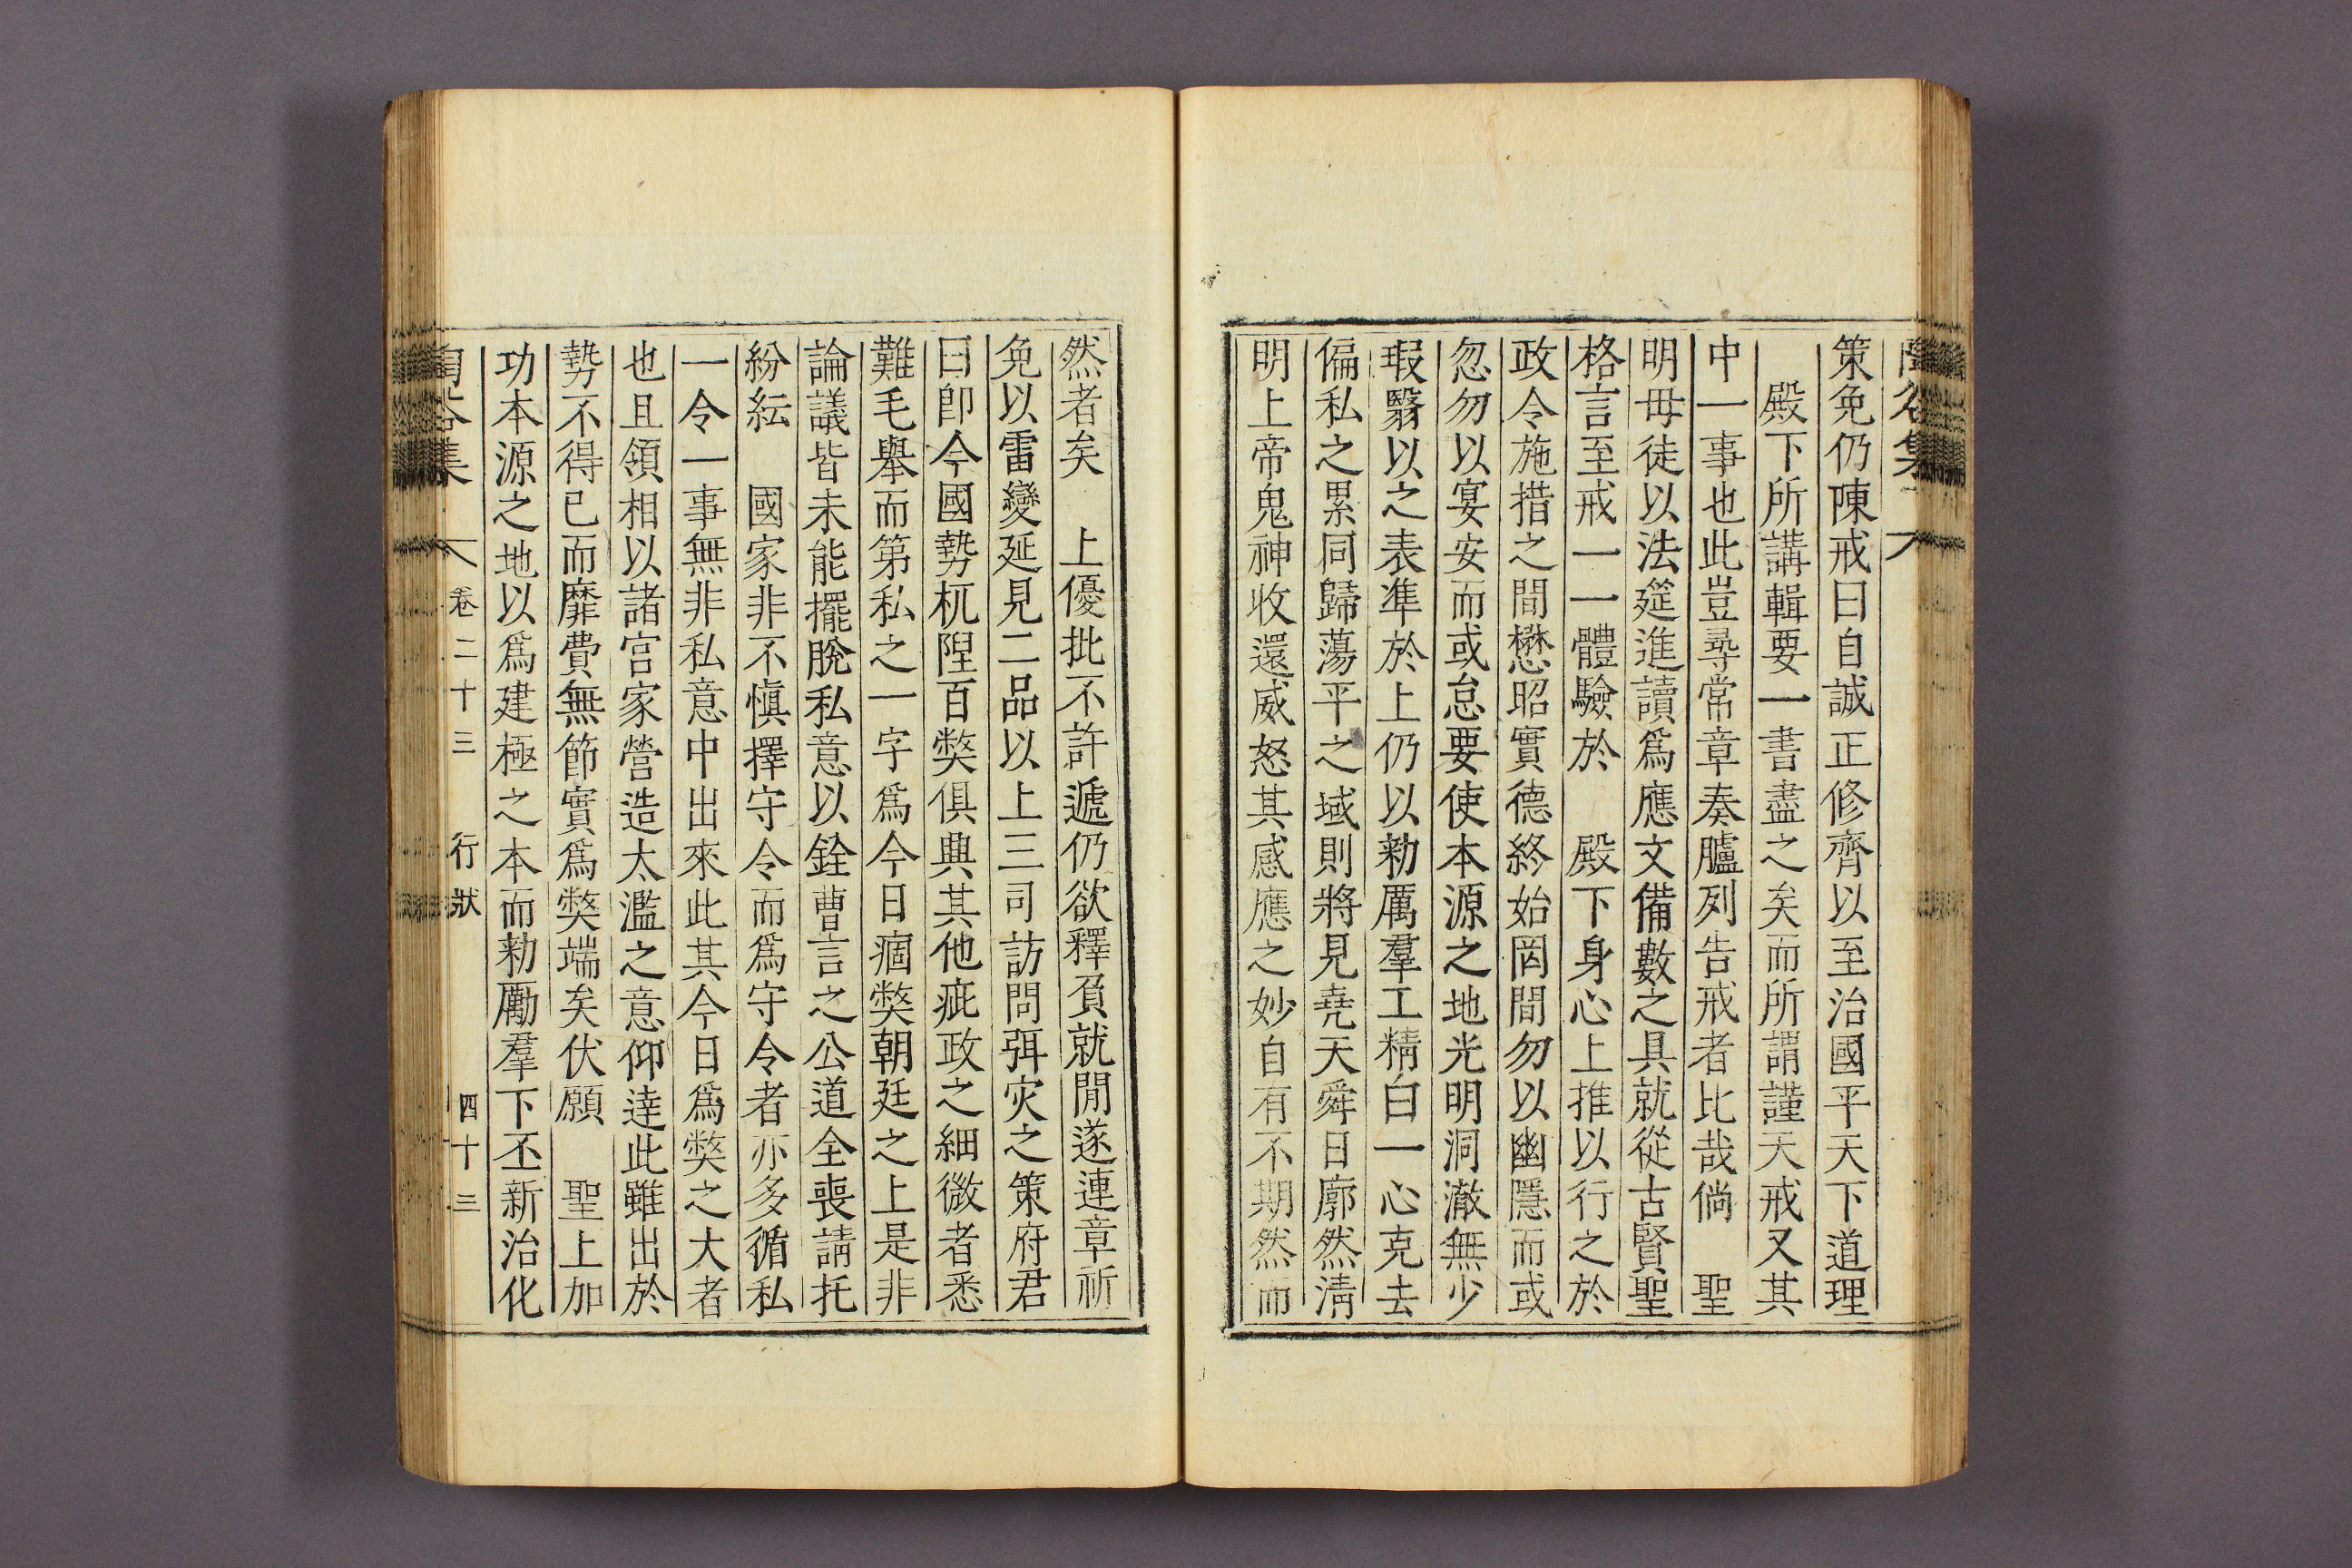 策免仍陳戒曰自誠正修齊以至治國平天下道理
殿下所講輯要一書盡之矣而所謂謹天戒又其
中一事也此豈尋常章奏臚列告戒者比哉倘　聖
明毋徒以法筵進讀爲應文備數之具就從古賢聖
格言至戒一一體驗於　殿下身心上推以行之於
政令施措之間懋昭實德終始罔間勿以幽隱而或
忽勿以宴安而或怠要使本源之地光明洞澈無少
瑕翳以之表準於上仍以勑厲羣工精白一心克去
偏私之累同歸蕩平之域則將見堯天舜日廓然淸
明上帝鬼神收還威怒其感應之妙自有不期然而
然者矣　上優批不許遞仍欲釋負就閒遂連章祈
免以雷變延見二品以上三司訪問弭灾之策府君
曰卽今國勢杌隉百弊俱興其他疵政之細微者悉
難毛擧而第私之一字爲今日痼弊朝廷之上是非
論議皆未能擺脫私意以銓曹言之公道全喪請托
紛紜　國家非不愼擇守令而爲守令者亦多循私
一令一事無非私意中出來此其今日爲弊之大者
也且領相以諸宮家營造太濫之意仰達此雖出於
勢不得已而靡費無節實爲弊端矣伏願　聖上加
功本源之地以爲建極之本而勑勵羣下丕新治化
卷二十三　行狀　四十三